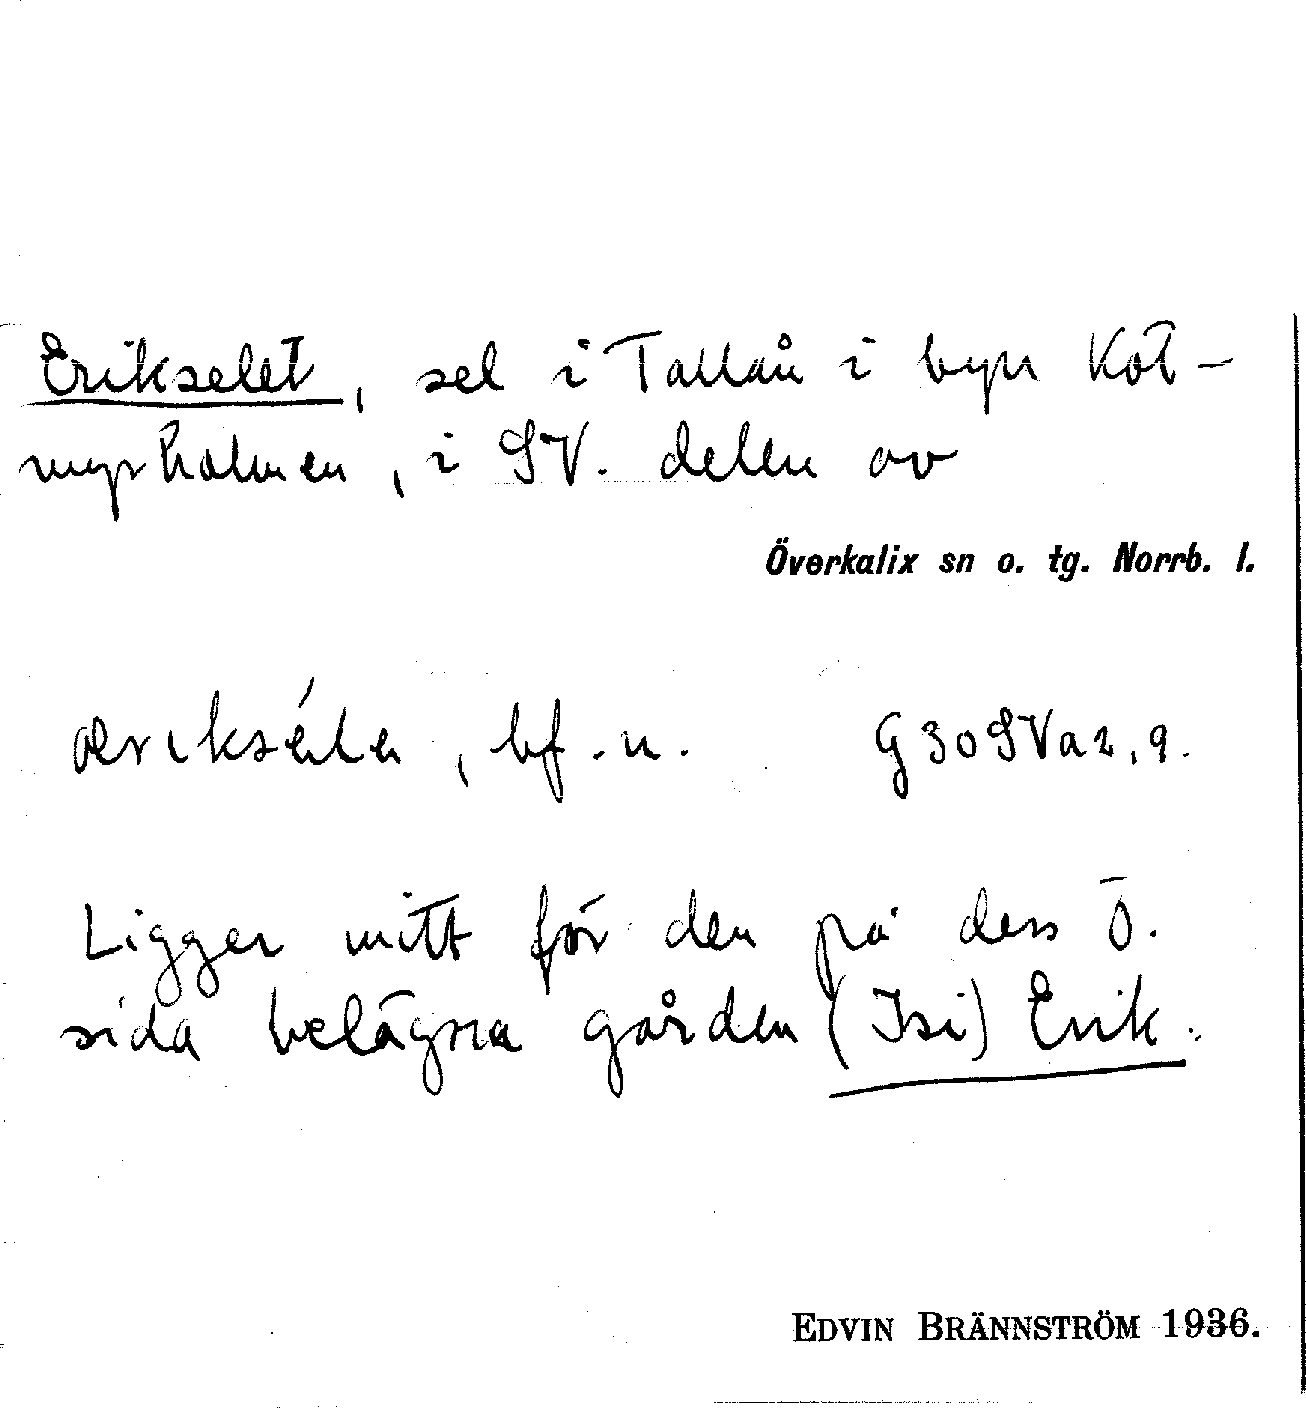 Erikselet, sel i Tallån i byn Köt-
myrholmen, i SV. delen av
Överkalix sn o. tg. Norrb. l.
æriksélen, bf. n. G30SVa2,9.
Ligger mitt för den på dess Ö.
sida belägna gården (Isi) Erik.
EDVIN BRÄNNSTRÖM 1936.